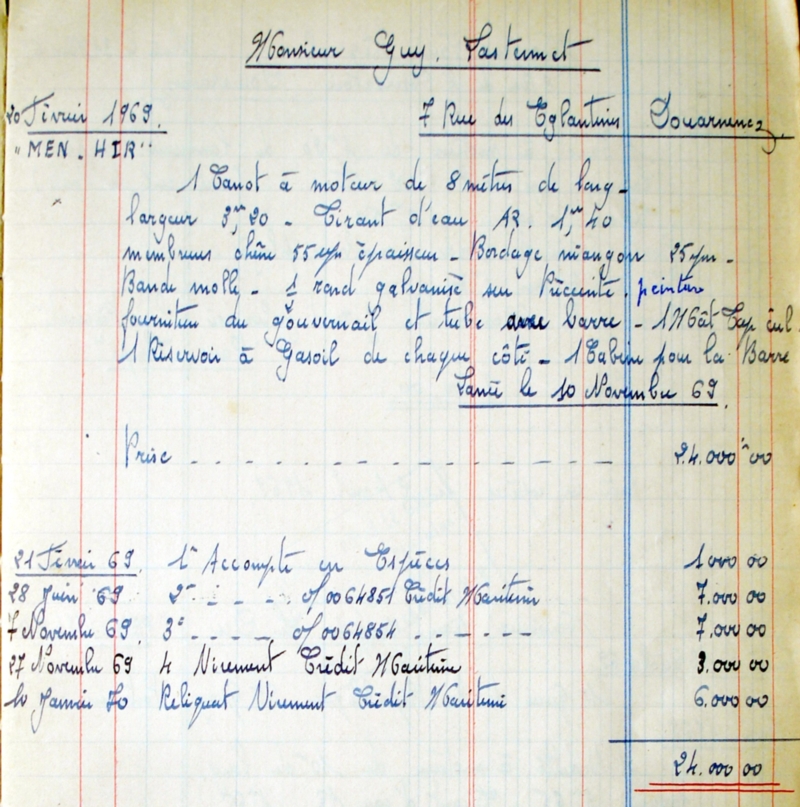 Monsieur Guy. Lastennet
20 Février 1969. 7 Rue des Eglantines Douarnenez
"MEN - HIR"
1 Canot à moteur de 8 mètres de long -
largeur 3m,20 - Tirant d'eau AR. 1m,40
membrures chêne 55 m/m épaisseur - Bordage niangon 25 m/m -
Bande molle - 1 rond galvanisé sur Préceinte. peinture
fourniture du gouvernail et tube avec barre - 1 Mât Tap cul.
1 Réservoir à Gasoil de chaque côté - 1 Cabine pour la Barre
Lancé le 10 Novembre 69.
Prise - - - - - - - - - - - - - - - 24.000 00
21 Février 69. 1er Accompte en Espèces 1000 00
28 Juin 69 2e - - - 0064851 Crédit Maritime 7.000 00
7 Novembre 69. 3e - - - - 0064854 - - - - - - 7.000 00
27 Novembre 69 4 Virement Crédit Maritime 3.000 00
10 Janvier 70 Réliquat Virement Crédit Maritime 6.000 00
24.000 00